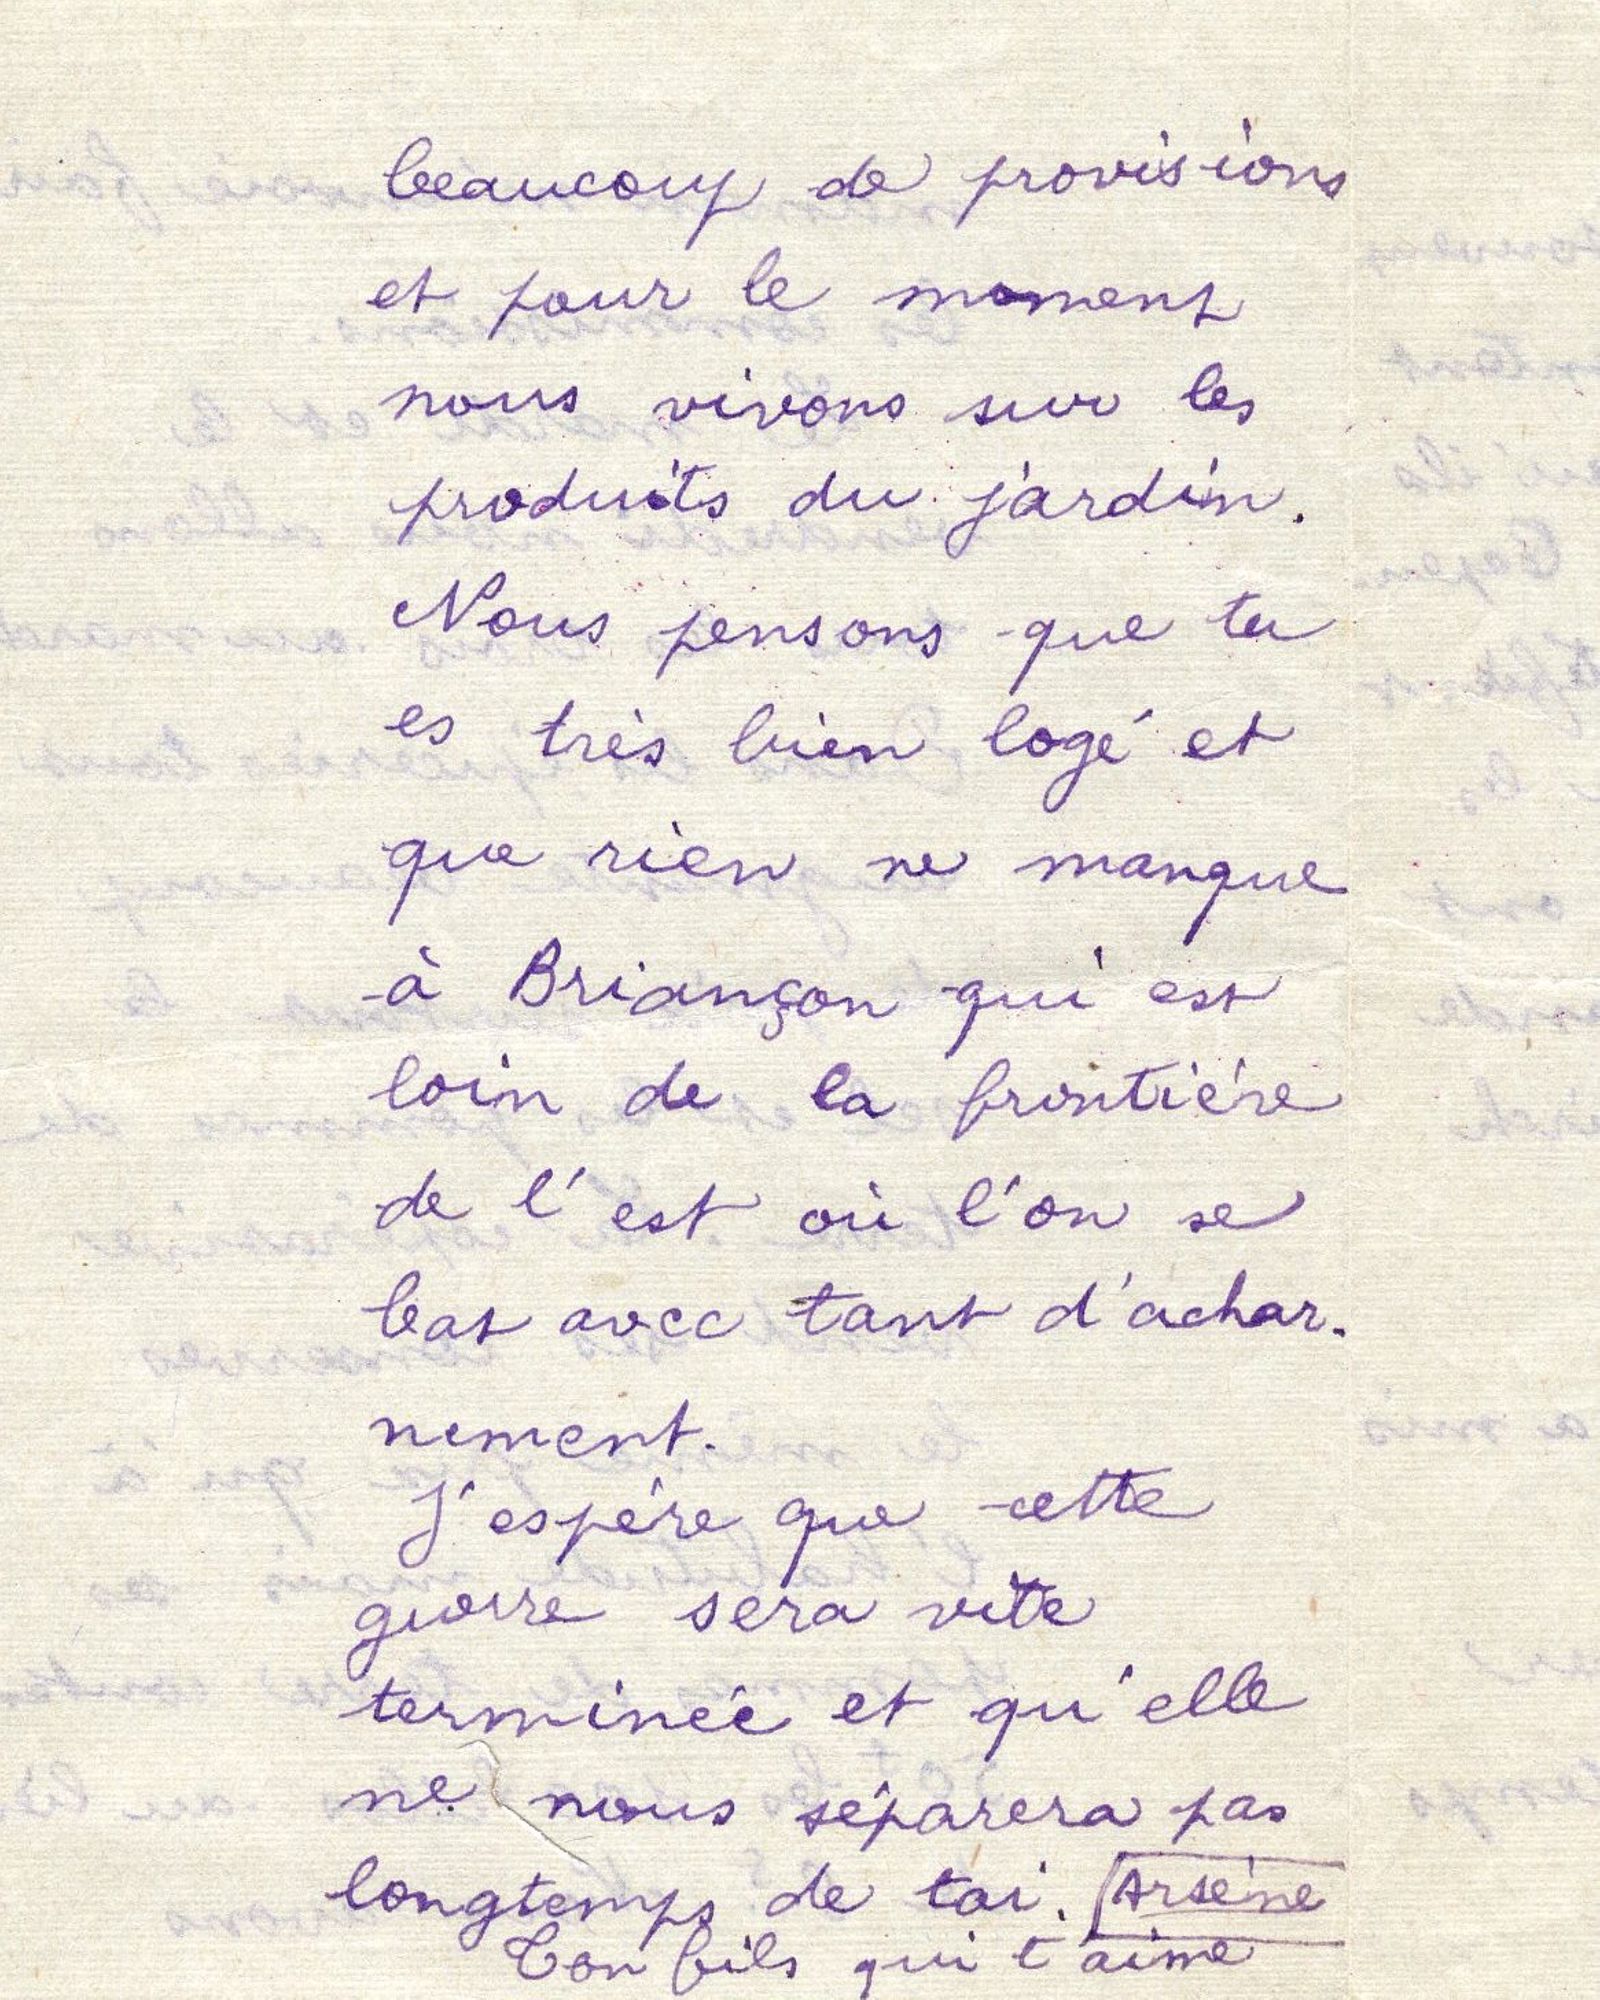 beaucoup de provisions
et pour le moment
nous vivons sur les
produits du jardin.
Nous pensons que tu
es très bien logé et
que rien ne manque
à Briançon qui est
loin de la frontière
de l'est où l'on se
bat avec tant d'achar-
nement.
J'espère que cette
guerre sera vite
terminée et qu'elle
ne nous séparera pas
longtemps de toi. Arsène
Ton fils qui t'aime